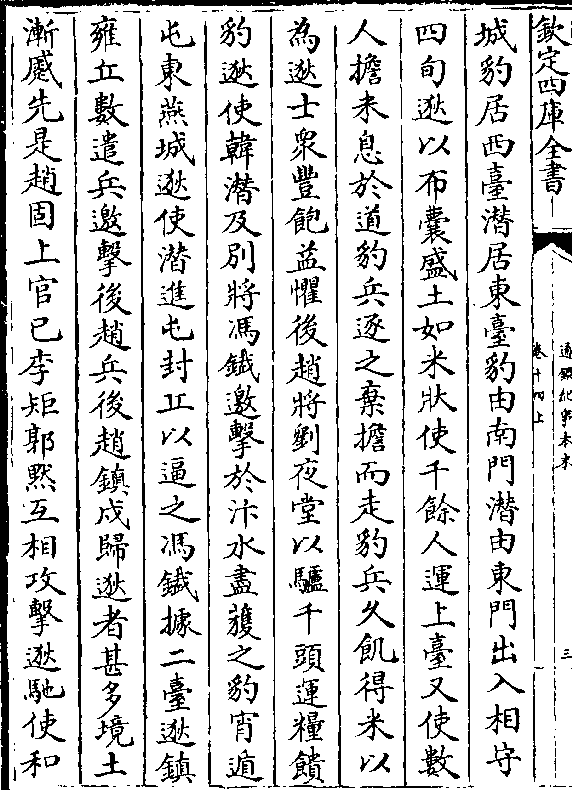 欽定四庫全書
通鑑紀事本末
卷十四上
三
城豹居西臺潛居東臺豹由南門潛由東門出入相守
四旬逖以布囊盛土如米狀使千餘人運上臺又使數
人擔米息於道豹兵逐之棄擔而走豹兵久飢得米以
為逖士衆豐飽益懼後趙將劉夜堂以驢千頭運糧饋
豹逖使韓潛及別將馮鐵邀擊於汴水盡獲之豹宵遁
屯東燕城逖使潛進屯封丘以逼之馮鐵據二臺逖鎮
雍丘數遣兵邀擊後趙兵後趙鎮戍歸逖者甚多境土
漸蹙先是趙固上官已李矩郭黙互相攻擊逖馳使和